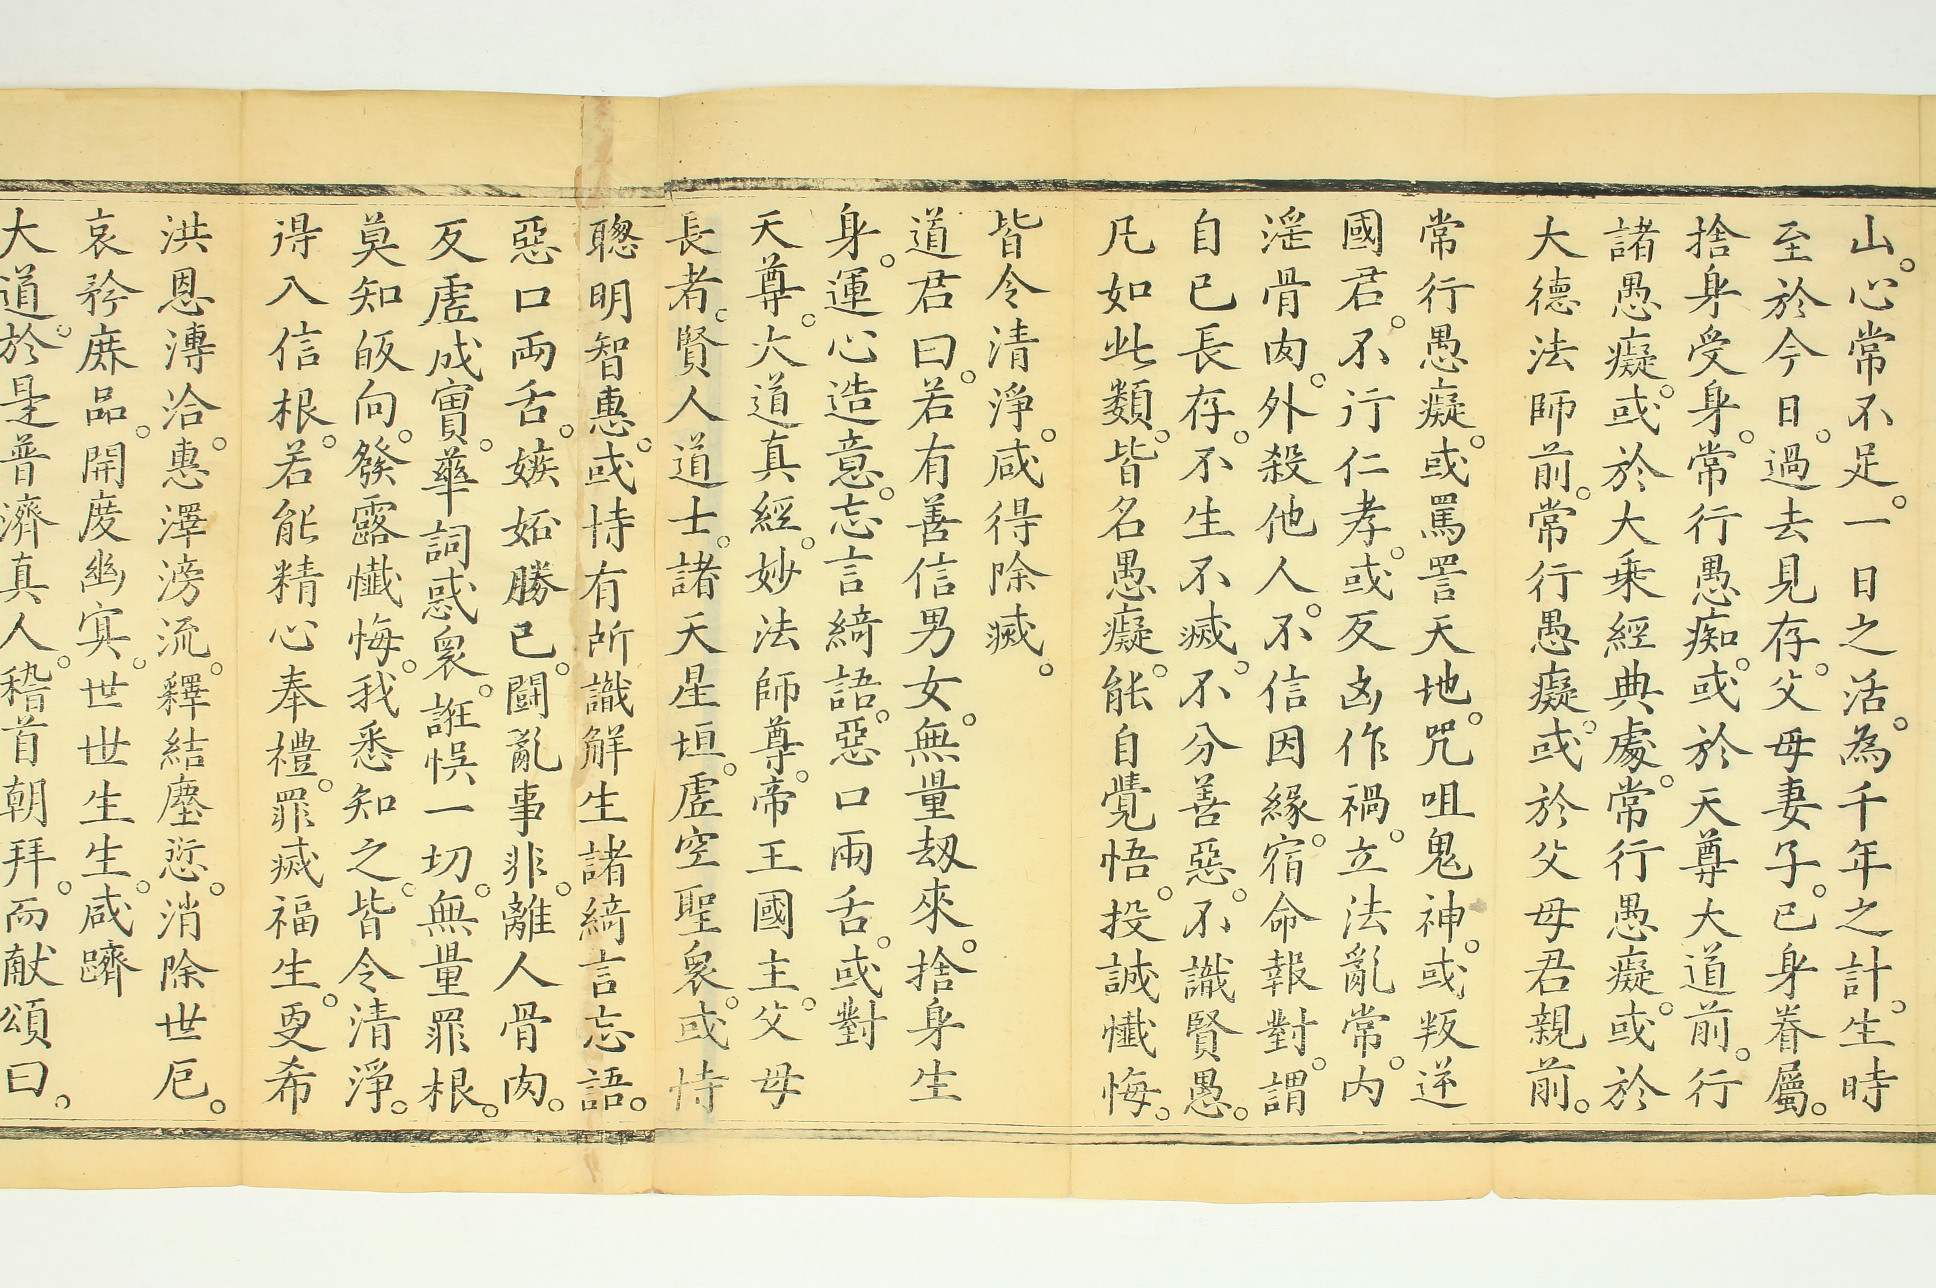 山。心常不足。一日之活。為千年之計。生時
至於今日。過去見存。父母妻子。已身眷屬。
捨身受身。常行愚痴。或於天尊大道前。行
諸愚癡。或於大乗經典處。常行愚癡。或於
大德法師前。常行愚癡。或於父母君親前。
常行愚癡。或罵詈天地。咒咀鬼神。或叛逆
國君。不行仁孝。或反凶作禍。立法亂常。内
淫骨肉。外殺他人。不信因緣。宿命報對。謂
自已長存。不生不滅。不分善惡。不識賢愚。
凡如此類。皆名愚癡。能自覺悟。投誠懺悔。
皆令清淨。咸得除滅。
道君曰。若有善信男女。無量劫來。捨身生
身。運心造意。忘言綺語。惡口兩舌。或對
天尊。大道真經。妙法師尊。帝王國主。父母
長者。賢人道士。諸天星垣。虛空聖衆。或恃
聰明智惠。或恃有所識解生諸綺言忘語。
惡口两舌。嫉妬勝已。鬪亂事非。離人骨肉。
反虛成實。華詞惑衆。誑悮一切。無量罪根。
莫知皈向。發露懺悔。我悉知之。皆令清淨。
得入信根。若能精心奉禮。罪滅福生。更希
洪恩溥洽。惠澤滂流。釋結塵愆。消除世厄。
哀矜庶品。開度幽冥。世世生生。咸躋
大道。於是普濟真人。稽首朝拜。而献頌曰。